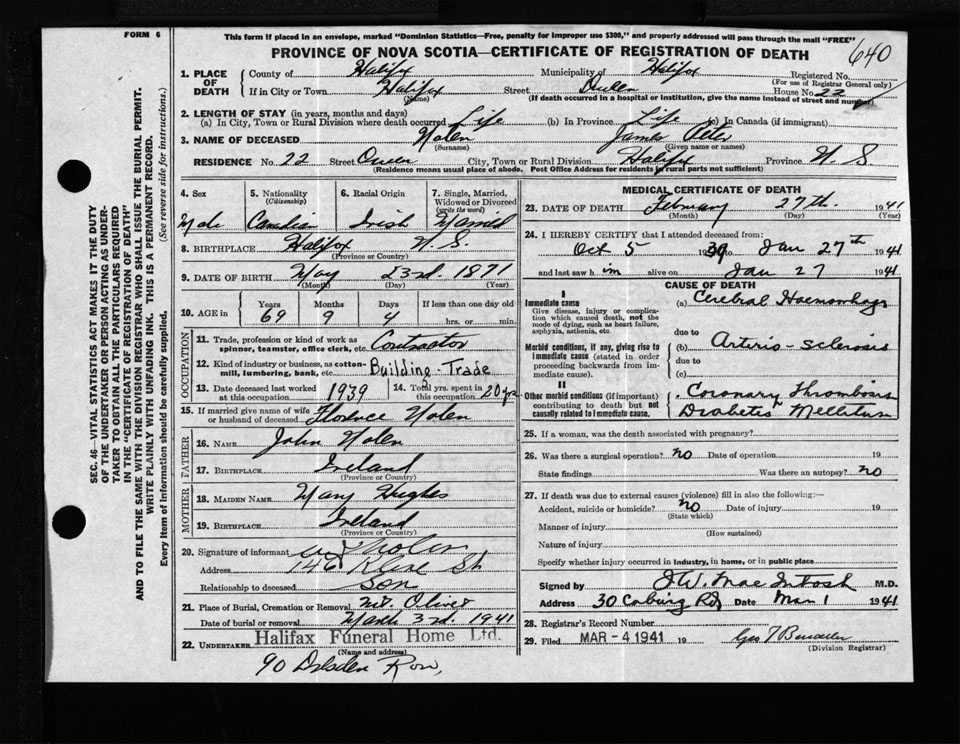 FORM 6
This form if placed in an envelope, marked "Dominion Statistics—Free, penalty for improper use $300," and properly addressed will pass through the mail "FREE"
640
PROVINCE OF NOVA SCOTIA—CERTIFICATE OF REGISTRATION OF DEATH
1. PLACE OF DEATH
County of Halifax Municipality of Halifax Registered No.
(For use of Registrar General only)
If in City or Town Halifax Street Queen House No. 22
(Name) (If death occurred in a hospital or institution, give the name instead of street and number)
2. LENGTH OF STAY (in years, months and days)
(a) In City, Town or Rural Division where death occurred Life (b) In Province Life (c) In Canada (if immigrant)
3. NAME OF DECEASED Nolen James Peter
(Surname) (Given name or names)
RESIDENCE No. 22 Street Queen City, Town or Rural Division Halifax Province N. S.
(Residence means usual place of abode. Post Office Address for residents in rural parts not sufficient)
4. Sex 5. Nationality (Citizenship) 6. Racial Origin 7. Single, Married, Widowed or Divorced (write the word)
Male Canadian Irish Married
8. BIRTHPLACE Halifax N. S.
(Province or Country)
9. DATE OF BIRTH May 23rd. 1871
(Month) (Day) (Year)
10. AGE in Years Months Days If less than one day old
69 9 4 hrs. or min.
OCCUPATION
11. Trade, profession or kind of work as spinner, teamster, office clerk, etc. Contractor
12. Kind of industry or business, as cotton-mill, lumbering, bank, etc. Building-Trade
13. Date deceased last worked at this occupation 1939 14. Total yrs. spent in this occupation 20 yrs.
15. If married give name of wife or husband of deceased Florence Nolen
FATHER
16. NAME John Nolen
17. BIRTHPLACE Ireland
(Province or Country)
MOTHER
18. MAIDEN NAME Mary Hughes
19. BIRTHPLACE Ireland
(Province or Country)
20. Signature of informant Nolen
Address 146 St
Relationship to deceased Son
21. Place of Burial, Cremation or Removal Mt. Olivet
Date of burial or removal March 3rd. 1941
22. UNDERTAKER Halifax Funeral Home Ltd.
(Name and address)
90 Dresden Row,
MEDICAL CERTIFICATE OF DEATH
23. DATE OF DEATH February 27th. 1941
(Month) (Day) (Year)
24. I HEREBY CERTIFY that I attended deceased from:
Oct 5 1939 Jan 27th 1941
and last saw him alive on Jan 27 1941
CAUSE OF DEATH
I
Immediate cause
Give disease, injury or complication which caused death, not the mode of dying, such as heart failure, asphyxia, asthenia, etc.
(a) Cerebral Haemorrhage
due to
Morbid conditions, if any, giving rise to immediate cause (stated in order proceeding backwards from immediate cause).
(b) Arterio-sclerosis
due to
(c)
II
Other morbid conditions (if important) contributing to death but not causally related to immediate cause.
Coronary Thrombosis
Diabetis Mellitus
25. If a woman, was the death associated with pregnancy?
26. Was there a surgical operation? no Date of operation 19
State findings Was there an autopsy? no
27. If death was due to external causes (violence) fill in also the following:—
Accident, suicide or homicide? no Date of injury 19
(State which)
Manner of injury
(How sustained)
Nature of injury
Specify whether injury occurred in industry, in home, or in public place
Signed by J W. MacIntosh M.D.
Address 30 Coburg Rd Date Mar 1 1941
28. Registrar's Record Number
29. Filed MAR - 4 1941 19
(Division Registrar)
SEC. 46—VITAL STATISTICS ACT MAKES IT THE DUTY
OF THE UNDERTAKER OR PERSON ACTING AS UNDER-
TAKER TO OBTAIN ALL THE PARTICULARS REQUIRED
IN THE "CERTIFICATE OF REGISTRATION OF DEATH"
AND TO FILE THE SAME WITH THE DIVISION REGISTRAR WHO SHALL ISSUE THE BURIAL PERMIT.
WRITE PLAINLY WITH UNFADING INK. THIS IS A PERMANENT RECORD.
Every item of information should be carefully supplied. (See reverse side for instructions.)